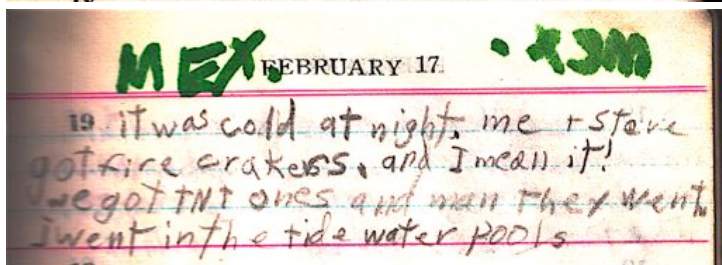 MEX. FEBRUARY 17 .XƎM
19 it was cold at night. me + Steve
got fire crakers. and I mean it!
we got TNT ones and man they went.
I went in the tide water pools